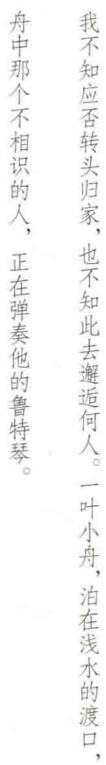 我不知应否转头归家，也不知此去邂逅何人。一叶小舟，泊在浅水的渡口，
舟中那个不相识的人，正在弹奏他的鲁特琴。